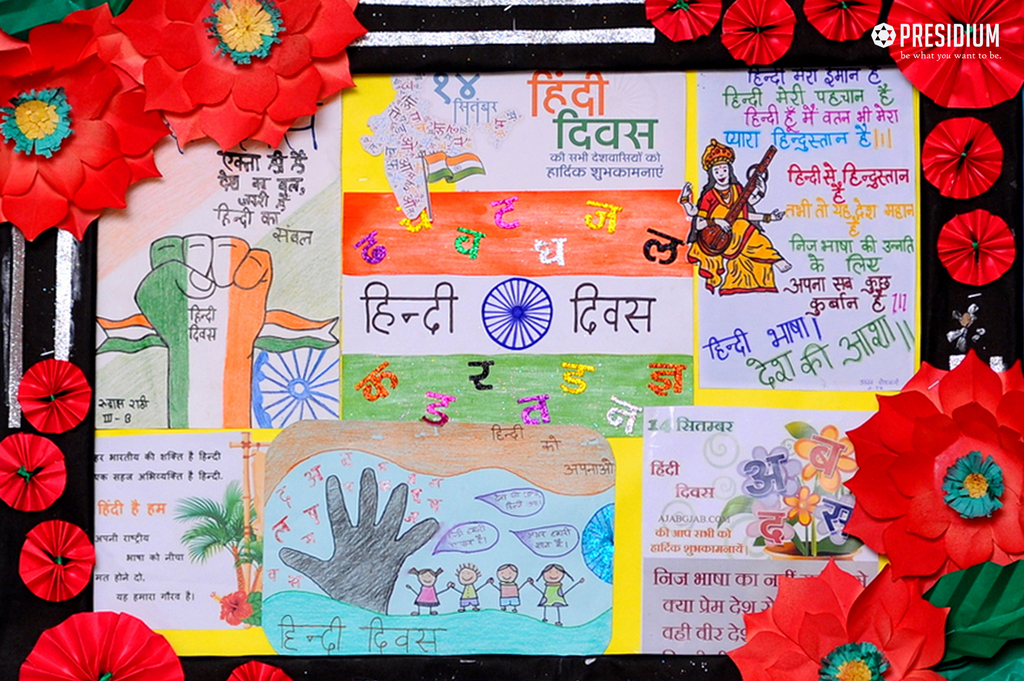 PRESIDIUM
be what you want to be.
एकता ही है
देश का बल,
जरूरी है
हिन्दी का
संबल
हिन्दी
दिवस
III-B
१४
सितंबर
हिंदी
दिवस
की सभी देशवासियों को
हार्दिक शुभकामनाएं
ढ प ट ज
व घ ल
हिन्दी दिवस
क र ड ज्ञ
ड त न
हिन्दी मेरा ईमान है
हिन्दी मेरी पहचान है
हिन्दी हूँ मैं वतन भी मेरा
प्यारा हिन्दुस्तान है।।।
हिन्दी से हिन्दुस्तान
है
तभी तो यह देश महान
है
निज भाषा की उन्नति
के लिए
अपना सब कुछ
कुर्बान है।।।
हिन्दी भाषा।
देश की आशा।।
हर भारतीय की शक्ति है हिन्दी
एक सहज अभिव्यक्ति है हिन्दी.
हिंदी है हम
अपनी राष्ट्रीय
भाषा को नीचा
मत होने दो.
यह हमारा गौरव है।
हिन्दी को
अपनाओ
हिन्दी दिवस
14 सितम्बर
हिंदी
दिवस
AJABGJAB.COM
की आप सभी को
हार्दिक शुभकामनायें
अ ब
द स
निज भाषा का नहीं
क्या प्रेम देश
वही वीर देश